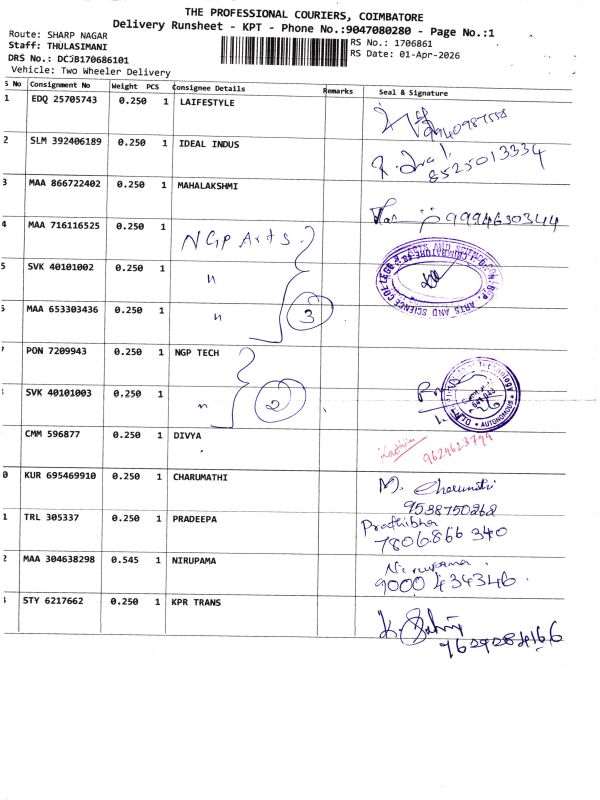 THE PROFESSIONAL COURIERS, COIMBATORE
Delivery Runsheet - KPT - Phone No.:9047080280 - Page No.:1
Route: SHARP NAGAR
Staff: THULASIMANI
DRS No.: DCJB170686101
Vehicle: Two Wheeler Delivery
RS No.: 1706861
RS Date: 01-Apr-2026
S No Consignment No Weight PCS Consignee Details Remarks Seal & Signature
1 EDQ 25705743 0.250 1 LAIFESTYLE
2 SLM 392406189 0.250 1 IDEAL INDUS
8525013334
3 MAA 866722402 0.250 1 MAHALAKSHMI
9994630344
4 MAA 716116525 0.250 1 NGP Arts.
5 SVK 40101002 0.250 1 "
MAA 653303436 0.250 1 " 3
PON 7209943 0.250 1 NGP TECH
SVK 40101003 0.250 1 " 2
AUTONOMOUS
CMM 596877 0.250 1 DIVYA
9629623799
0 KUR 695469910 0.250 1 CHARUMATHI M. Charumathi
9538750262
1 TRL 305337 0.250 1 PRADEEPA Prathibha
7806866340
2 MAA 304638298 0.545 1 NIRUPAMA Nirupama
9000434346
STY 6217662 0.250 1 KPR TRANS
9629284166